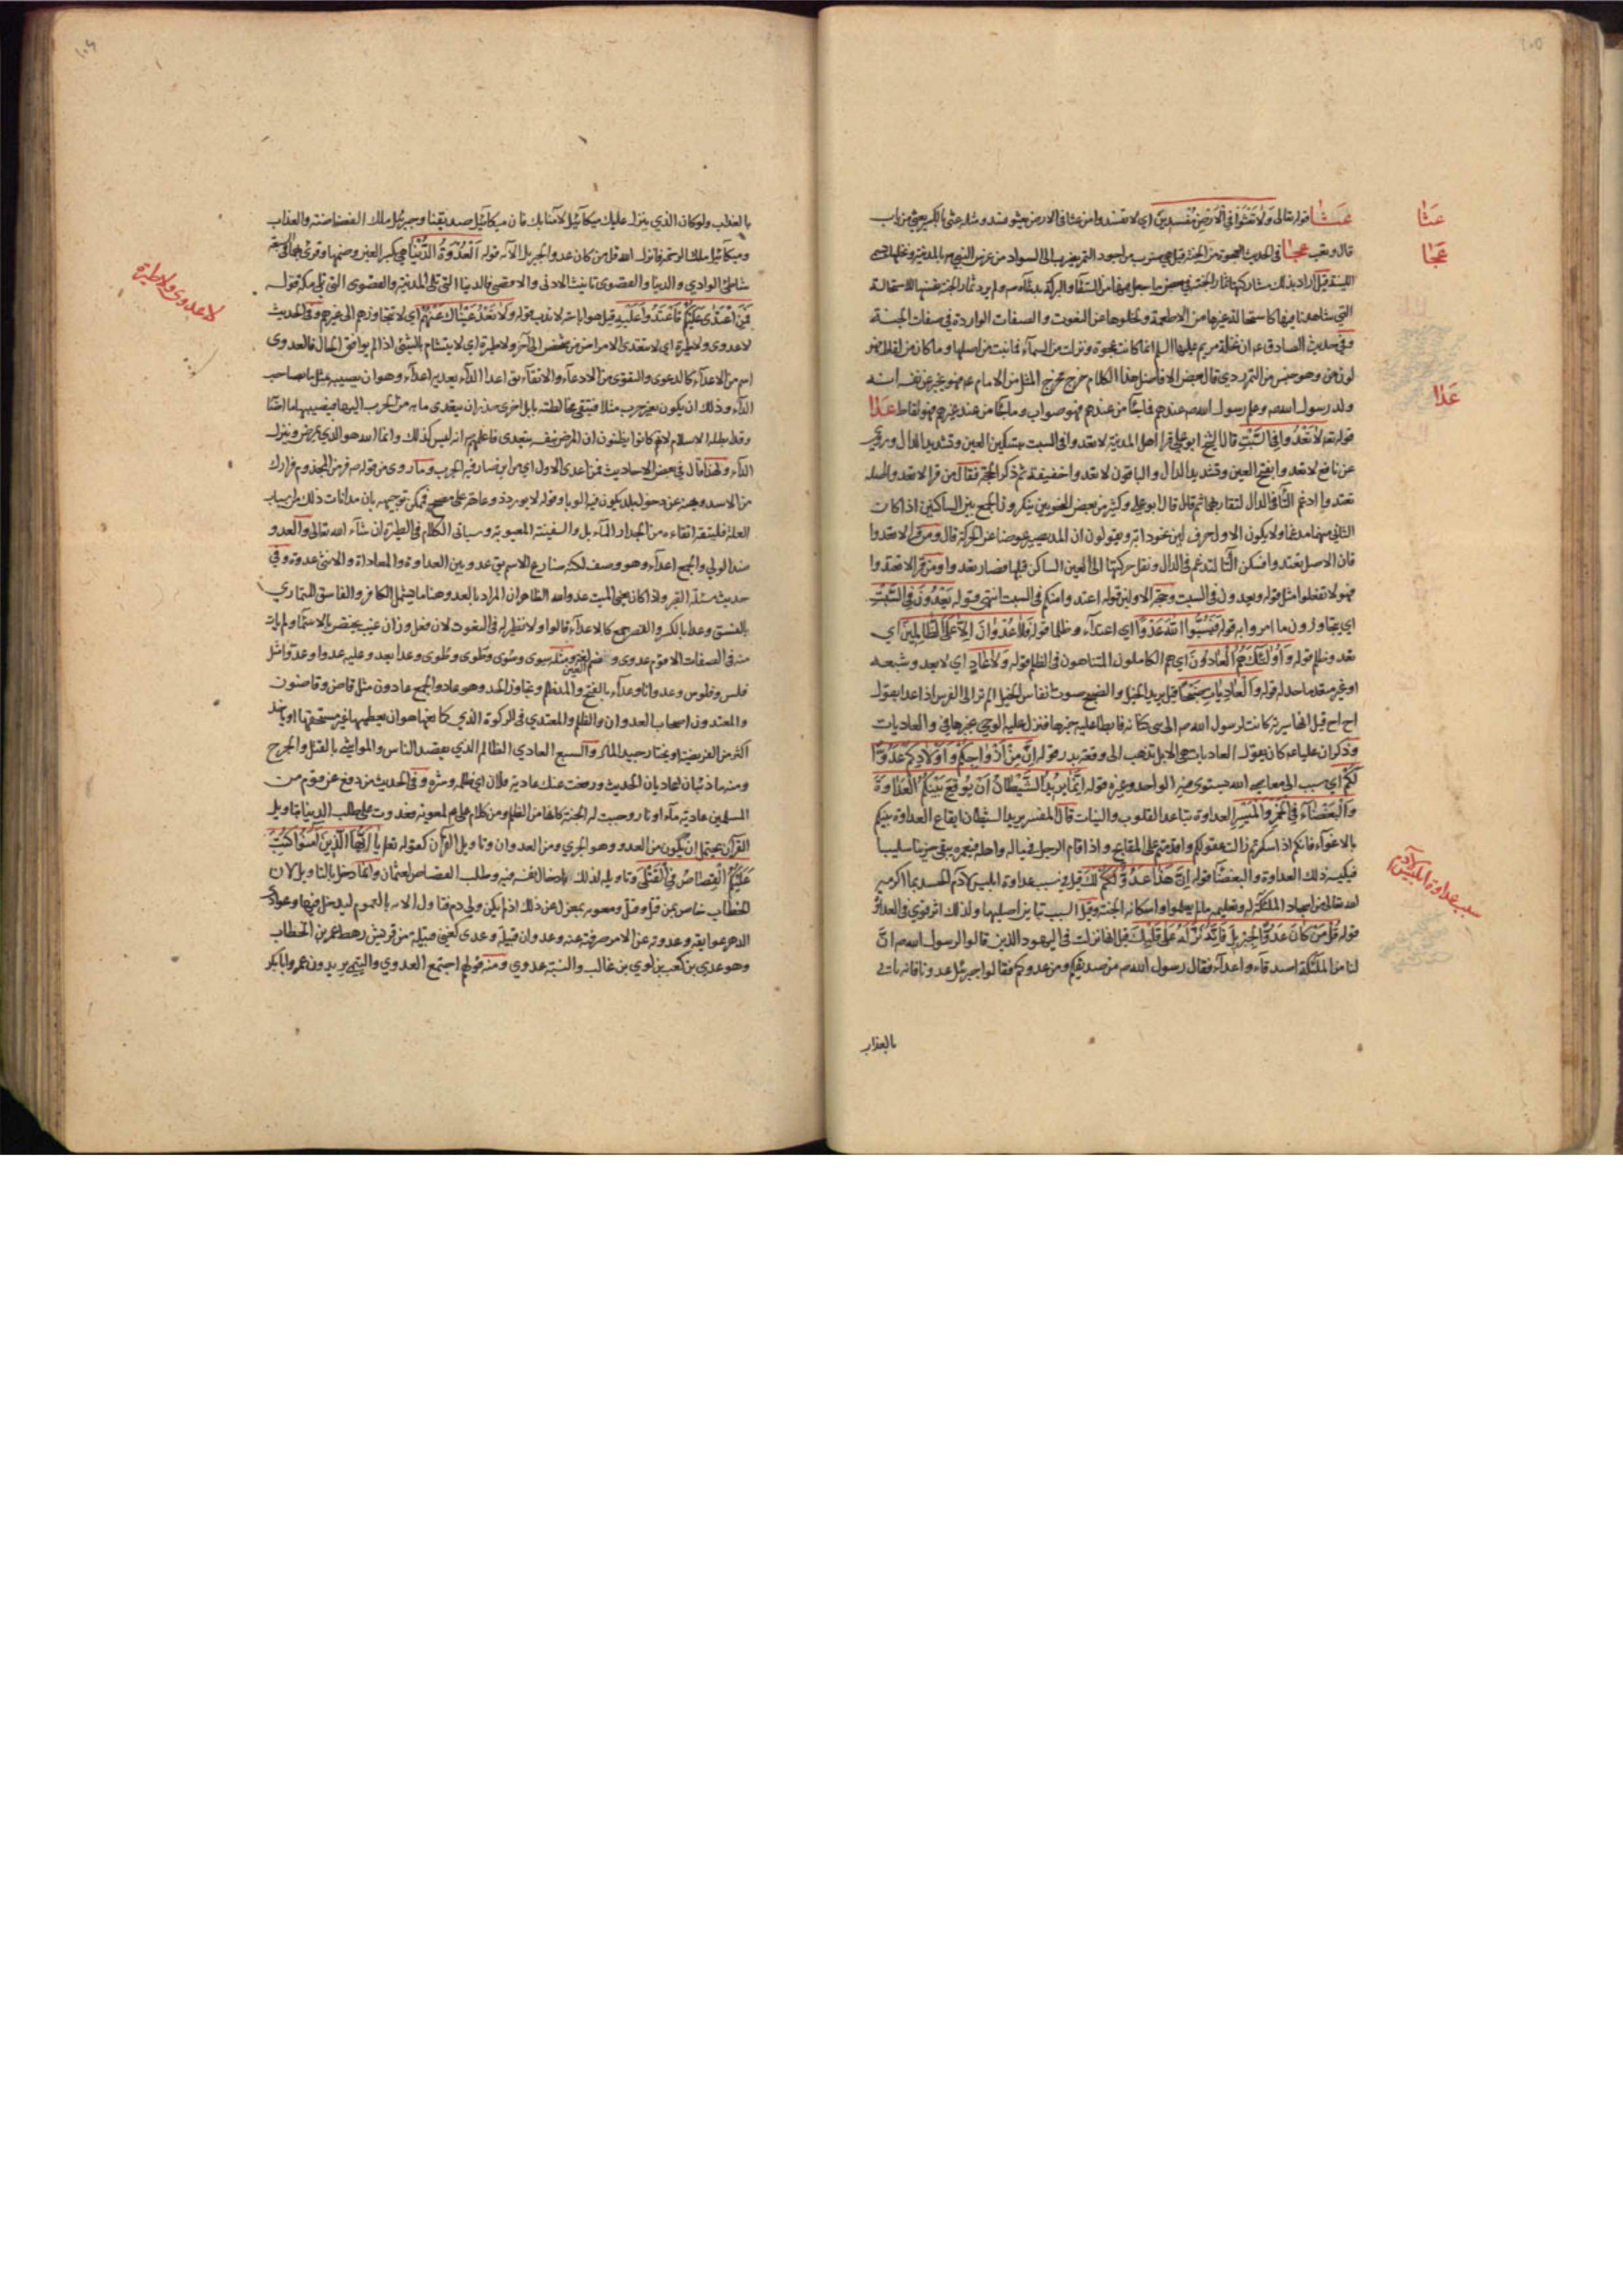 ١٠٥
عثا
عجا
عدا
سبب عداوة ابليس لآدم
عثا قوله تعالى ولا تعثوا في الارض مفسدين اي لا تفسدوا من عثا في الارض يعثو فسد ومثله عثى بالكسر يعثى من باب
قال وتعب عجا في الحديث العجوة من الجنة قيل هي ضرب من اجود التمر يضرب الى السواد من غرس النبي ص بالمدينة ونخلها تسمى
اللينة قيل اراد بذلك مشاركتها ثمار الجنة في بعض ما جعل فيها من الشفاء والبركة بدعائه ص ولم يرد ثمار الجنة نفسها للاستحالة
التي شاهدنا فيها كاستحالة غيرها من الاطعمة ولخلوها عن النعوت والصفات الواردة في صفات الجنة
وفي حديث الصادق ع ان نخلة مريم عليها السلام انما كانت عجوة ونزلت من السماء فما نبت من اصلها وما كان من لقاط فهو
لون وهو جنس من التمر ردي قال بعض الافاضل هذا الكلام خرج مخرج المثل من الامام ع فهو يخبر عن نفسه انه
ولد رسول الله ص وعلم رسول الله ص عندهم فما جاء من عندهم فهو صواب وما جاء من عند غيرهم فهو لقاط عدا
قوله تعالى لا تعدوا في السبت قال الشيخ ابو علي قرأ اهل المدينة لا تعدوا في السبت بتسكين العين وتشديد الدال وروي
عن نافع لا تعدوا بفتح العين وتشديد الدال والباقون لا تعدوا خفيفة ثم ذكر الحجة فقال من قرأ لا تعدوا اصله
تعتدوا ادغم التاء في الدال لتقاربهما ثم قال قال ابو علي وكثير من بعض النحويين ينكرون الجمع بين الساكنين اذا كان
الثاني منهما مدغما ولا يكون الاول حرف لين نحو دابة ويقولون ان المد يصير عوضا عن الحركة قال ومن قرأ لا تعدوا
فان الاصل تعتدوا فسكن التاء لتدغم في الدال ونقل حركتها الى العين الساكن قبلها فصار تعدوا ومن قرأ لا تعتدوا
فهو لا تفعلوا مثل قوله ويعدون في السبت وحجة الاولين قوله اعتدوا منكم في السبت انتهى وقوله يعدون في السبت
اي يتجاوزون ما امروا به قوله فيسبوا الله عدوا اي اعتداء وظلما قوله فلا عدوان الا على الظالمين اي
تعد وظلم قوله واولئك هم العادون اي هم الكاملون المتناهون في الظلم قوله ولا عاد اي لا يعدو شبعه
او غير متعد ما حد له قوله والعاديات ضبحا قيل يريد الخيل والضبح صوت انفاس الخيل الم تر الى الفرس اذا عدا يقول
اح اح قيل انها سرية كانت لرسول الله ص الى بني كنانة فابطأ عليه خبرها فنزل عليه الوحي بخبرها في والعاديات
وذكر ان عليا ع كان يقول العاديات هي الابل تذهب الى وقعة بدر قوله ان من ازواجكم واولادكم عدوا
لكم اي سبب الى معاصي الله يستوي فيه الواحد وغيره قوله انما يريد الشيطان ان يوقع بينكم العداوة
والبغضاء في الخمر والميسر العداوة تباعد القلوب والنيات قال المفسر يريد الشيطان ايقاع العداوة بينكم
بالاغواء فانكم اذا سكرتم زالت عقولكم واقدمتم على المقابح واذا قامر الرجل في ماله واهله فيقمره يبقى حزينا سليبا
فيكسبه ذلك العداوة والبغضاء قوله ان هذا عدو لك قيل في سبب عداوة ابليس لآدم الحسد بما اكرمه
الله تعالى من اسجاد الملائكة له وتعليمه ما لم يعلموا واسكانه الجنة وقيل السبب تباين اصليهما ولذلك اثر قوي في العداوة
قوله قل من كان عدوا لجبريل فانه نزله على قلبك قيل انها نزلت في اليهود الذين قالوا لرسول الله ص ان
لنا من الملائكة اصدقاء واعداء فقال رسول الله ص من صديقكم ومن عدوكم فقالوا جبرئيل عدونا فانه ياتي
بالعذاب
١٠٦
لا عدوى ولا طيرة
بالعذاب ولو كان الذي ينزل عليك ميكائيل لآمنا بك فان ميكائيل صديقنا وجبرئيل ملك الفضاضة والعذاب
وميكائيل ملك الرحمة فانزل الله قل من كان عدوا لجبريل الآية قوله العدوة الدنيا هي بكسر العين وضمها وقرئ بهما في السبعة
شاطئ الوادي والدنيا والقصوى تانيث الادنى والاقصى فالدنيا التي تلي المدينة والقصوى التي تلي مكة قوله
فمن اعتدى عليكم فاعتدوا عليه قيل هو اباحة لا ندب قوله ولا تعد عيناك عنهم اي لا تتجاوزهم الى غيرهم وفي الحديث
لا عدوى ولا طيرة اي لا تتعدى الامراض من شخص الى آخر ولا طيرة اي لا يتشام بالشيء اذا لم يوافق الحال فالعدوى
اسم من الاعداء كالدعوى والتقوى من الادعاء والاتقاء يق اعداه الداء يعديه اعداء وهو ان يصيبه مثل ما بصاحب
الداء وذلك ان يكون ببعير جرب مثلا فيتقى مخالطته بابل اخرى حذرا ان يتعدى ما به من الجرب اليها فيصيبها ما اصابه
وقد ابطله الاسلام لانهم كانوا يظنون ان المرض بنفسه يتعدى فاعلمهم انه ليس كذلك وانما الله هو الذي يمرض وينزل
الداء ولهذا قال في بعض الاحاديث فمن اعدى الاول اي من اين صار فيه الجرب وما روي من قوله ص فر من المجذوم فرارك
من الاسد ونهيه عن دخول بلد يكون فيه الوباء وقوله لا يورد ذو عاهة على مصح فيمكن توجيهه بان مدانات ذلك من اسباب
العلة فليتقه اتقاءه من الجدار المائل والسفينة المعيوبة وسياتي الكلام في الطيرة ان شاء الله تعالى والعدو
ضد الولي والجمع اعداء وهو وصف لكنه ضارع الاسم يق عدو بين العداوة والمعاداة والانثى عدوة وفي
حديث مسئلة القبر واذا كان يعني الميت عدو الله الظاهر ان المراد بالعدو هنا ما يشمل الكافر والفاسق المتمادي
بالفسق وعدا بالكسر والقصر جمع كالاعداء قالوا ولا نظير له في النعوت لان فعل وزان عنب يختص بالاسماء ولم يات
منه في الصفات الا قوم عدوى وضم العين لغة ومثله سوى وسوى وطوى وطوى وعدا يعدو عليه عدوا وعدوا مثل
فلس وفلوس وعدوانا وعداء بالفتح والمد ظلم وتجاوز الحد وهو عاد والجمع عادون مثل قاض وقاضون
والمعتدون اصحاب العدوان والظلم والمعتدي في الزكوة الذي كمانعها هو ان يعطيها غير مستحقها او ياخذ
اكثر من الفريضة او يختار جيد المال والسبع العادي الظالم الذي يقصد الناس والمواشي بالقتل والجرح
ومنه ما ذئبان عاديان الحديث ورفعت عنك عادية فلان اي ظلمه وشره وفي الحديث من دفع عن قوم من
المسلمين عادية ماء او نار وجبت له الجنة كانها من الظلم ومن كلام علي ع لمعوية فعدوت على طلب الدنيا بتاويل
القرآن يحتمل ان يكون من العدو وهو الجري ومن العدوان وتاويل القرآن كقوله تعالى يا ايها الذين آمنوا كتب
عليكم القصاص في القتلى وتاويله لذلك بادخال نفسه فيه وطلب القصاص لعثمان وانما دخل بالتاويل لان
الخطاب خاص بمن قتل وقتل ومعوية بمعزل عن ذلك اذ لم يكن ولي دم فتاول الآية بالعموم ليدخل فيها وعوادي
الدهر عوايقه وعدوته عن الامر صرفته عنه وعدوان قبيلة وعدي كغني قبيلة من قريش رهط عمر بن الخطاب
وهو عدي بن كعب بن لوي بن غالب والنسبة عدوي ومنه قولهم اجتمع العدوي والتيمي يريدون عمر وابا بكر